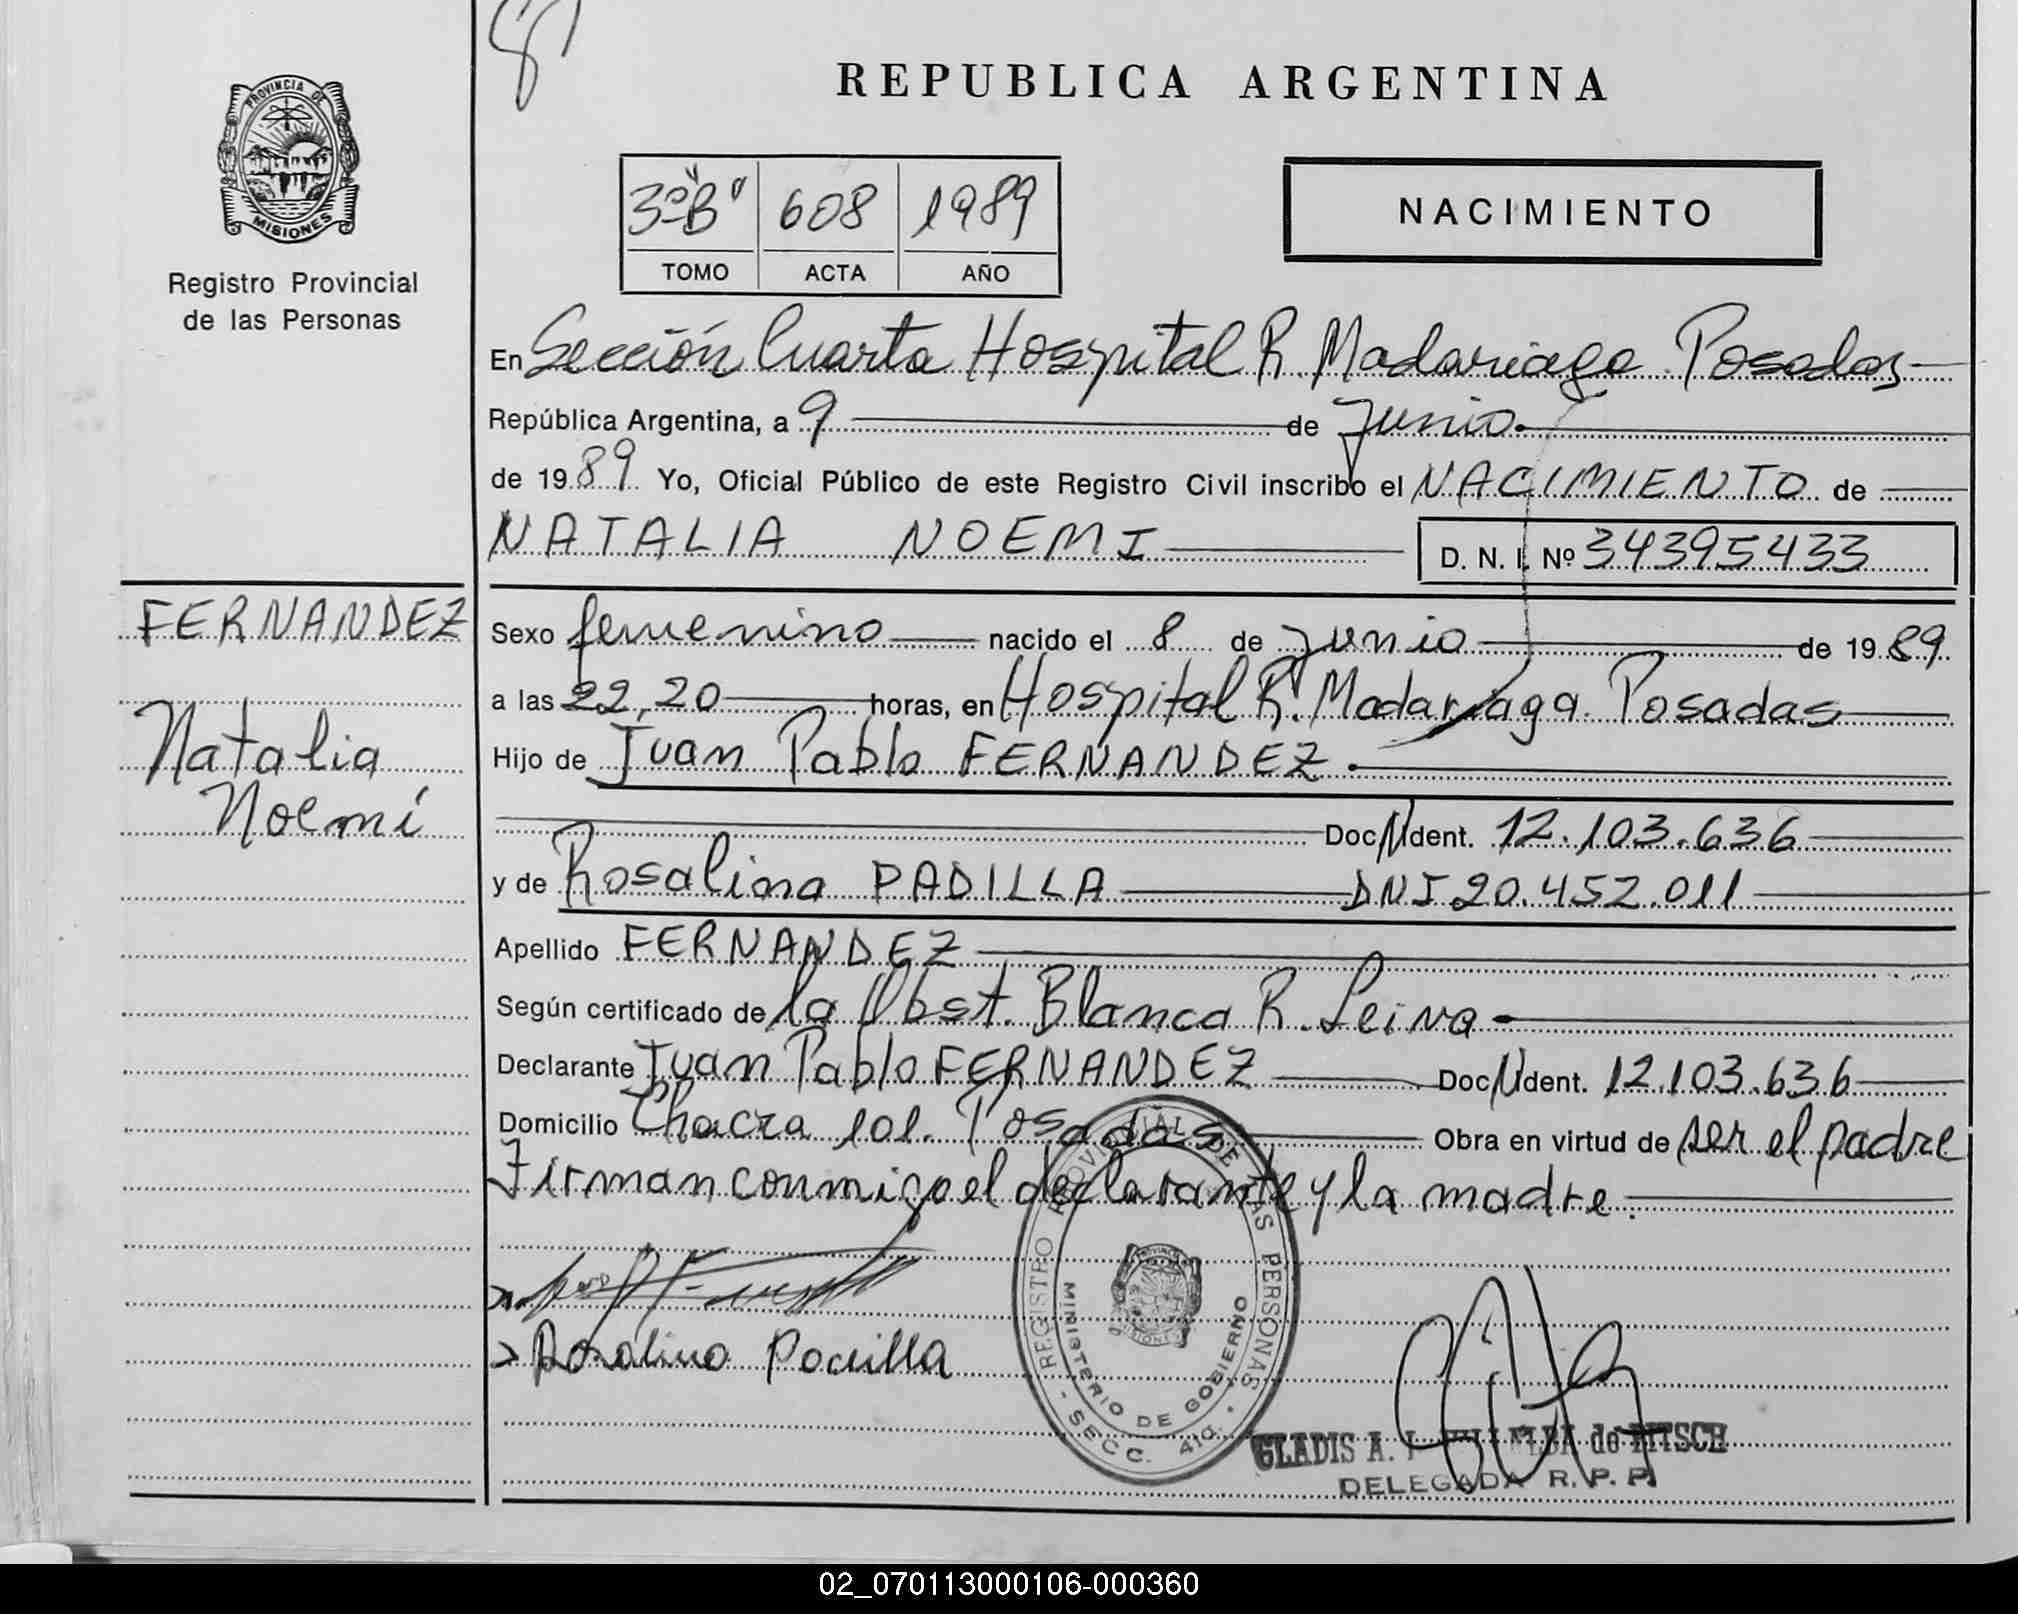 PROVINCIA DE
MISIONES
Registro Provincial
de las Personas
REPUBLICA ARGENTINA
3º "B" 608 1989
TOMO ACTA AÑO
NACIMIENTO
En Sección Cuarta Hospital R. Madariaga. Posadas
República Argentina, a 9 de Junio
de 1989 Yo, Oficial Público de este Registro Civil inscribo el NACIMIENTO de
NATALIA NOEMI D. N. I. Nº 34395433
FERNANDEZ
Natalia
Noemí
Sexo femenino nacido el 8 de Junio de 1989
a las 22,20 horas, en Hospital R. Madariaga. Posadas
Hijo de Juan Pablo FERNANDEZ.
Doc. Ident. 12.103.636
y de Rosalina PADILLA DNI 20.452.011
Apellido FERNANDEZ
Según certificado de la Obst. Blanca R. Leiva
Declarante Juan Pablo FERNANDEZ Doc. Ident. 12.103.636
Domicilio Chacra 101. Posadas Obra en virtud de ser el padre
Firman conmigo el declarante y la madre.
Rosalina Padilla
REGISTRO PROVINCIAL DE LAS PERSONAS
MINISTERIO DE GOBIERNO
- SECC. 4ta. -
GLADIS A. de
DELEGADA R. P. P.
02_070113000106-000360